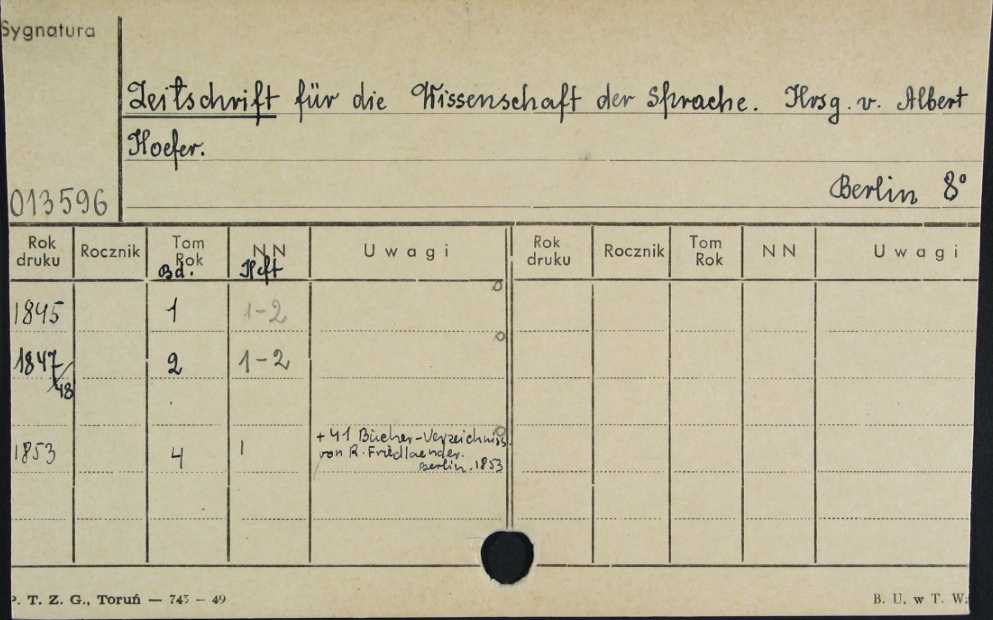 Sygnatura
Zeitschrift für die Wissenschaft der Sprache. Hrsg. v. Albert
Hoefer.
013596
Berlin 8°
Rok druku Rocznik Tom Rok NN Uwagi Rok druku Rocznik Tom Rok NN Uwagi
Bd. Heft
1845 1 1-2
1847/48 2 1-2
1853 4 1 +41 Bücher-Verzeichniss
von R. Friedlaender.
Berlin. 1853
P. T. Z. G., Toruń — 743 – 49 B. U. w T. W.